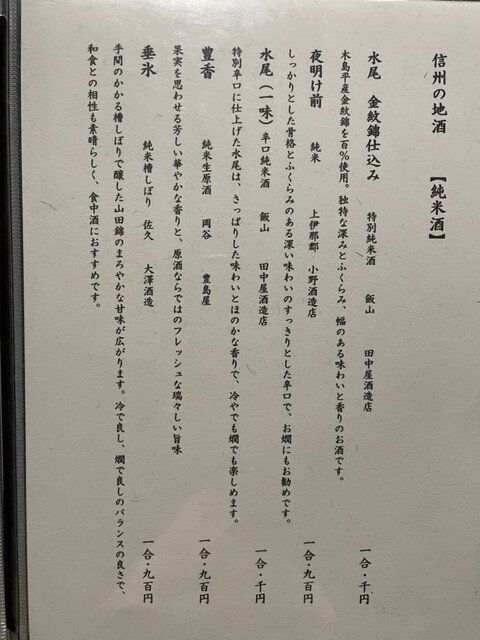 信州の地酒 【純米酒】
水尾 金紋錦仕込み 特別純米酒 飯山 田中屋酒造店 一合・千円
木島平産金紋錦を百%使用。独特な深みとふくらみ、幅のある味わいと香りのお酒です。
夜明け前 純米 上伊那郡 小野酒造店 一合・九百円
しっかりとした骨格とふくらみのある深い味わいのすっきりとした辛口で、お燗にもお勧めです。
水尾(一味) 辛口純米酒 飯山 田中屋酒造店 一合・千円
特別辛口に仕上げた水尾は、さっぱりした味わいとほのかな香りで、冷やでも燗でも楽しめます。
豊香 純米生原酒 岡谷 豊島屋 一合・九百円
果実を思わせる芳しい華やかな香りと、原酒ならではのフレッシュな瑞々しい旨味
垂氷 純米槽しぼり 佐久 大澤酒造 一合・九百円
手間のかかる槽しぼりで醸した山田錦のまろやかな甘味が広がります。冷で良し、燗で良しのバランスの良さで、
和食との相性も素晴らしく、食中酒におすすめです。